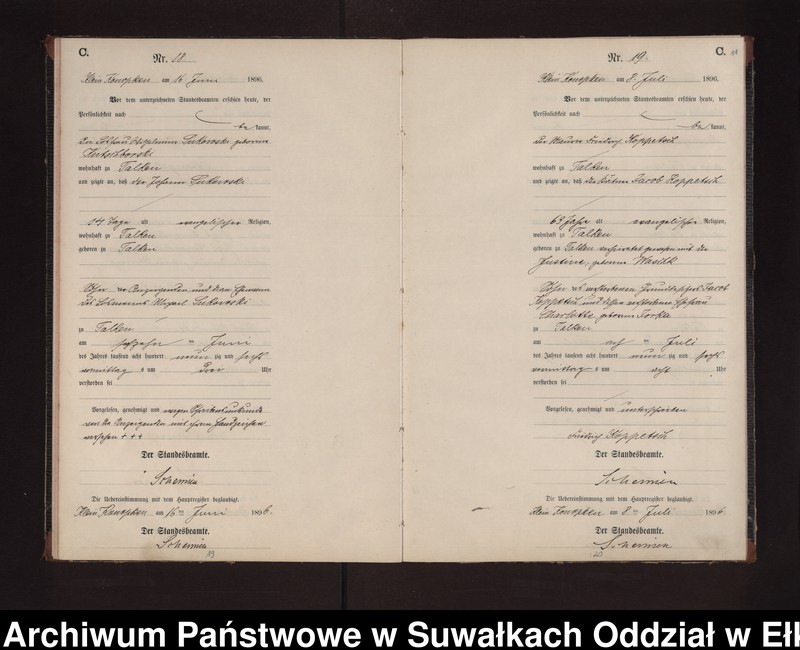 C.
Nr. 18
Klein Konopken am 16 Juni 1896.
Vor dem unterzeichneten Standesbeamten erschien heute, der
Persönlichkeit nach
be kannt,
Die Losfrau Lukowski geborene
wohnhaft zu Talken
und zeigte an, daß der Johann Lukowski
14 Tage alt evangelischer Religion,
wohnhaft zu Talken
geboren zu Talken
Sohn der Anzeigenden und deren Ehemann
des Losmanns Lukowski
zu Talken
am Juni
des Jahres tausend acht hundert neun zig und sechs
vormittag s um Uhr
verstorben sei
Vorgelesen, genehmigt und wegen
von der Anzeigenden mit ihrem Handzeichen
versehen + + +
Der Standesbeamte.
Schemien
Die Uebereinstimmung mit dem Hauptregister beglaubigt.
Klein Konopken am 16 ten Juni 1896.
Der Standesbeamte.
Schemien
19
C.
Nr. 19.
Klein Konopken am 8. Juli 1896.
Vor dem unterzeichneten Standesbeamten erschien heute, der
Persönlichkeit nach
be kannt,
Der Maurer Friedrich Koppetsch
wohnhaft zu Talken
und zeigte an, daß der Jacob Koppetsch
63 Jahr alt evangelischer Religion,
wohnhaft zu Talken
geboren zu Talken verheiratet gewesen mit der
Justine, geborene
Sohn des verstorbenen Grundbesitzers Jacob
Koppetsch und dessen verstorbene Ehefrau
Charlotte geborene
zu Talken
am acht ten Juli
des Jahres tausend acht hundert neun zig und sechs
vormittag s um acht Uhr
verstorben sei
Vorgelesen, genehmigt und unterschrieben
Friedrich Koppetsch
Der Standesbeamte.
Schemien
Die Uebereinstimmung mit dem Hauptregister beglaubigt.
Klein Konopken am 8 ten Juli 1896
Der Standesbeamte.
Schemien
20
Archiwum Państwowe w Suwałkach Oddział w Ełk